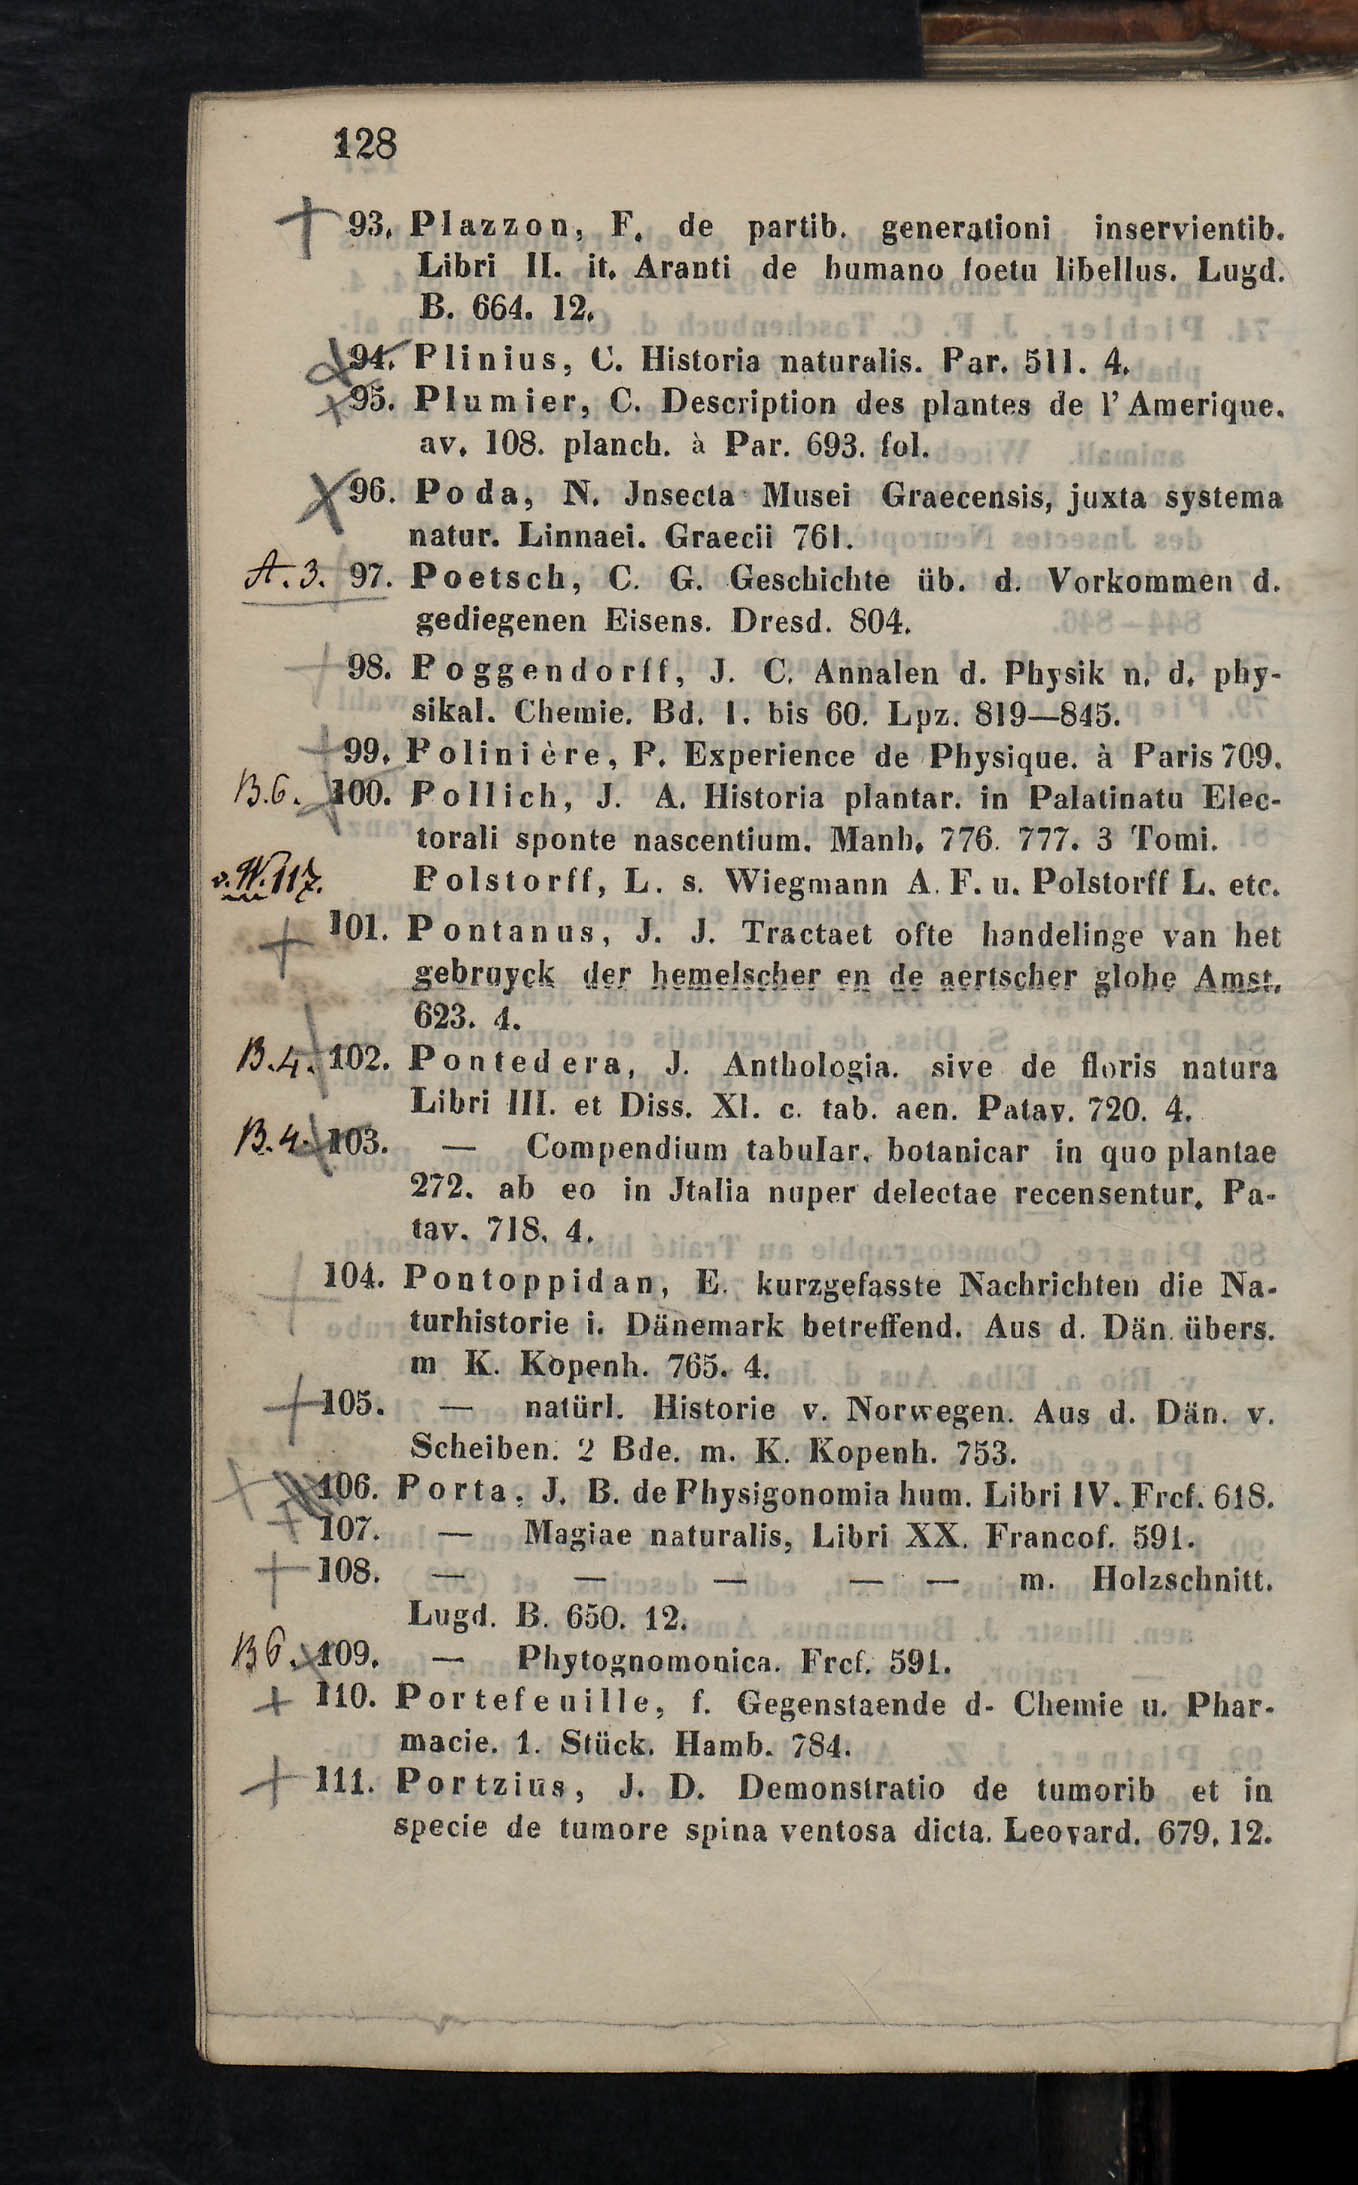 128
93. Plazzon, F. de partib. generationi inservientib.
Libri II. it. Aranti de humano foetu libellus. Lugd.
B. 664. 12.
94. Plinius, C. Historia naturalis. Par. 511. 4.
95. Plumier, C. Description des plantes de l'Amerique.
av. 108. planch. à Par. 693. fol.
96. Poda, N. Jnsecta Musei Graecensis, juxta systema
natur. Linnaei. Graecii 761.
A. 3. 97. Poetsch, C. G. Geschichte üb. d. Vorkommen d.
gediegenen Eisens. Dresd. 804.
98. Poggendorff, J. C. Annalen d. Physik n. d. phy-
sikal. Chemie. Bd. 1. bis 60. Lpz. 819—845.
99. Polinière, P. Experience de Physique. à Paris 709.
B.6. 100. Pollich, J. A. Historia plantar. in Palatinatu Elec-
torali sponte nascentium. Manh. 776. 777. 3 Tomi.
v. W. 117. Polstorff, L. s. Wiegmann A. F. u. Polstorff L. etc.
101. Pontanus, J. J. Tractaet ofte handelinge van het
gebruyck der hemelscher en de aertscher globe Amst.
623. 4.
B.4. 102. Pontedera, J. Anthologia. sive de floris natura
Libri III. et Diss. XI. c. tab. aen. Patav. 720. 4.
B.4. 103. — Compendium tabular. botanicar in quo plantae
272. ab eo in Jtalia nuper delectae recensentur. Pa-
tav. 718. 4.
104. Pontoppidan, E. kurzgefasste Nachrichten die Na-
turhistorie i. Dänemark betreffend. Aus d. Dän. übers.
m K. Kopenh. 765. 4.
105. — natürl. Historie v. Norwegen. Aus d. Dän. v.
Scheiben. 2 Bde. m. K. Kopenh. 753.
106. Porta, J. B. de Physigonomia hum. Libri IV. Frcf. 618.
107. — Magiae naturalis, Libri XX. Francof. 591.
108. — — — — — m. Holzschnitt.
Lugd. B. 650. 12.
B6. 109. — Phytognomonica. Frcf. 591.
110. Portefeuille, f. Gegenstaende d- Chemie u. Phar-
macie. 1. Stück. Hamb. 784.
111. Portzius, J. D. Demonstratio de tumorib et in
specie de tumore spina ventosa dicta. Leovard. 679. 12.